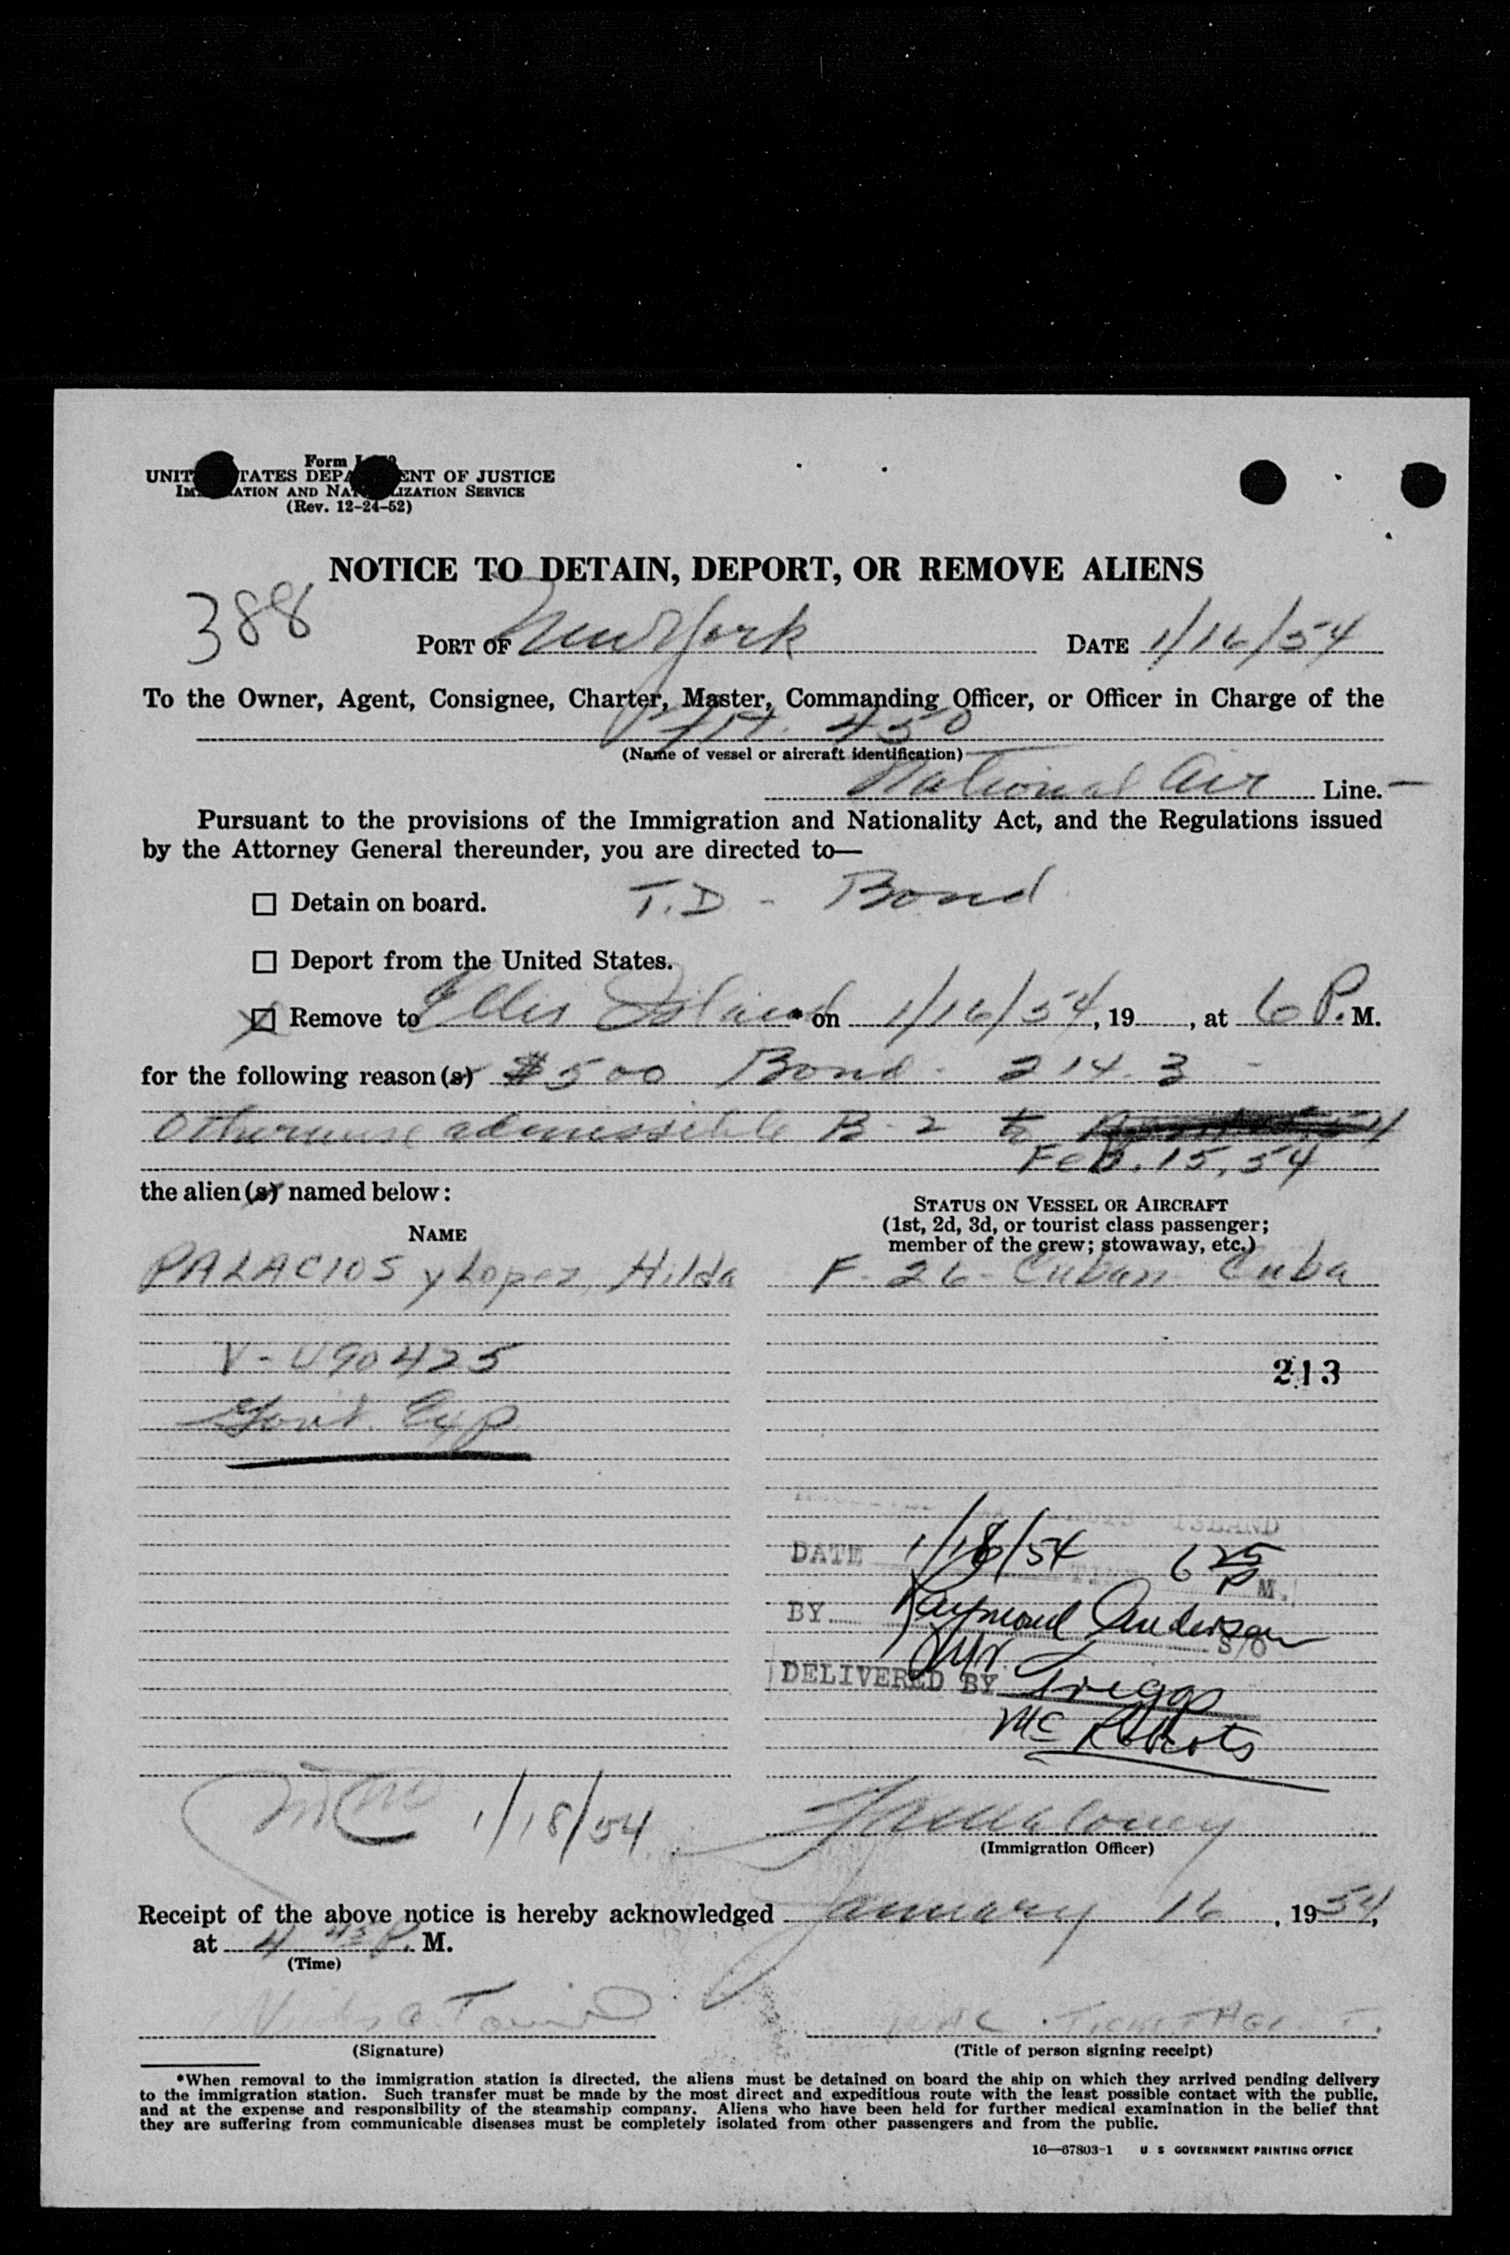 Form I-
UNIT TATES DEPA ENT OF JUSTICE
IM ATION AND NAT LIZATION SERVICE
(Rev. 12-24-52)
NOTICE TO DETAIN, DEPORT, OR REMOVE ALIENS
388
PORT OF New York DATE 1/16/54
To the Owner, Agent, Consignee, Charter, Master, Commanding Officer, or Officer in Charge of the
Flt. 450
(Name of vessel or aircraft identification)
National Air Line.
Pursuant to the provisions of the Immigration and Nationality Act, and the Regulations issued
by the Attorney General thereunder, you are directed to—
☐ Detain on board. T.D - Bond
☐ Deport from the United States.
☒ Remove to Ellis Island * on 1/16/54, 19 , at 6 P. M.
for the following reason(s) $500 Bond - 214.3 -
Otherwise admissible B-2 to
Feb. 15, 54
the alien(s) named below:
NAME
STATUS ON VESSEL OR AIRCRAFT
(1st, 2d, 3d, or tourist class passenger;
member of the crew; stowaway, etc.)
PALACIOS y Lopez, Hilda F - 26 - Cuban Cuba
V-U90425
213
Govt. Exp
ISLAND
DATE 1/18/54 TIME 6 25 P M.
BY Raymond Anderson
S/O
DELIVERED BY Mr Griggs
McRoberts
1/18/54
(Immigration Officer)
Receipt of the above notice is hereby acknowledged January 16, 1954,
at 4 45 P. M.
(Time)
NAL. Ticket Agent.
(Signature) (Title of person signing receipt)
*When removal to the immigration station is directed, the aliens must be detained on board the ship on which they arrived pending delivery
to the immigration station. Such transfer must be made by the most direct and expeditious route with the least possible contact with the public,
and at the expense and responsibility of the steamship company. Aliens who have been held for further medical examination in the belief that
they are suffering from communicable diseases must be completely isolated from other passengers and from the public.
16—67803-1 U S GOVERNMENT PRINTING OFFICE